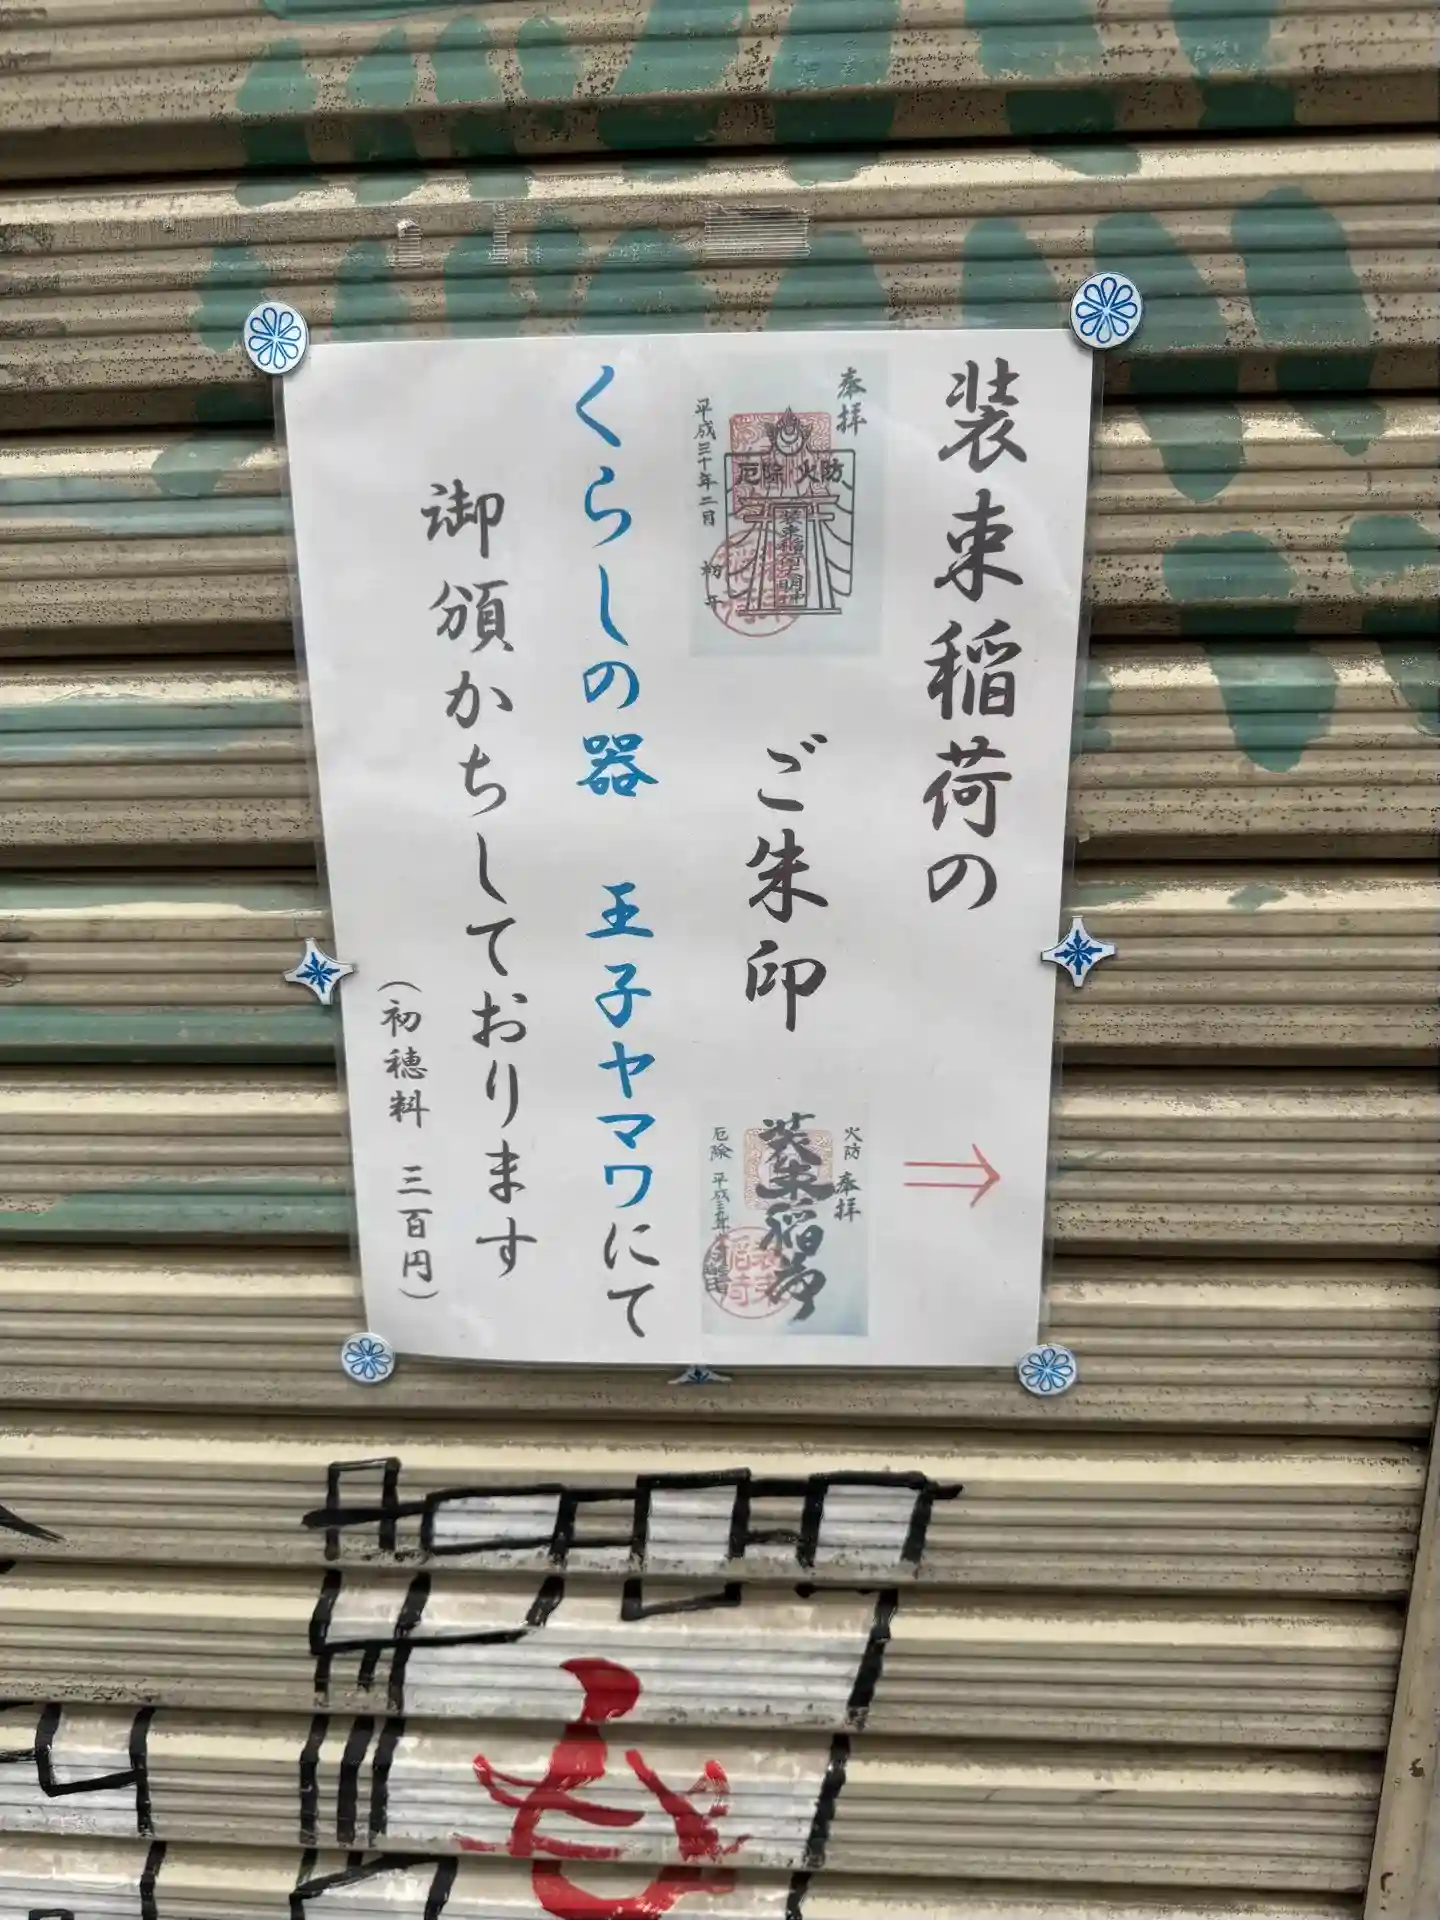 装束稲荷の
奉拝
厄除 火防
装束稲荷大明神
平成三十年二月 初午
ご朱印
火防
奉拝
装束稲荷
厄除
くらしの器 王子ヤマワにて
御頒かちしております
（初穂料 三百円）